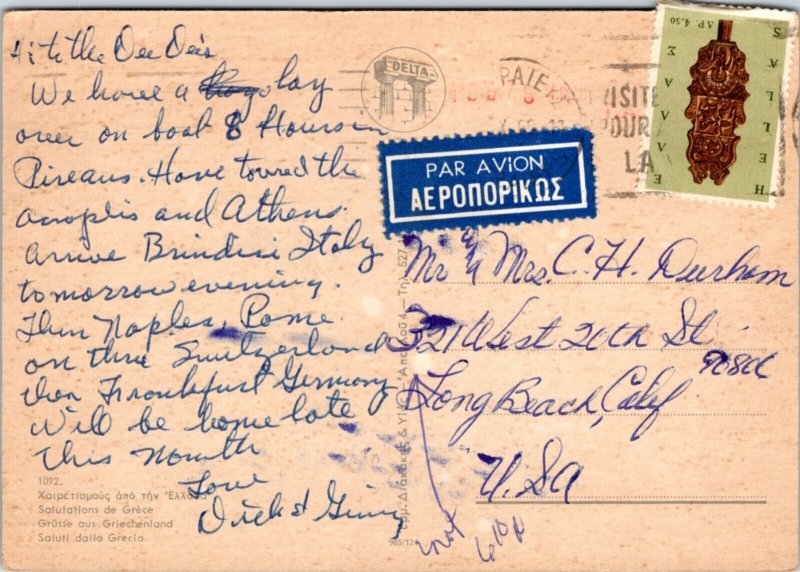 Hi to the Dee Dee's
We have a lay
over on boat 8 Hours in
Pireaus. Have toured the
acroplis and Athens.
arrive Brindisi Italy
tomorrow evening.
Then Naples, Rome
on thru Switzerland
then Frankfurt Germany
Will be home late
this Month
Love
Dick & Ginny
1092.
Χαιρετισμούς ἀπό τὴν Ἑλλάδα
Salutations de Grèce
Grüsse aus Griechenland
Saluti dalla Grecia
DELTA
985/124
PAR AVION
ΑΕΡΟΠΟΡΙΚΩΣ
VISITE
POUR
LA
ΔΡ. 4.50
ΕΛΛΑΣ
HELLAS
Mr & Mrs. C. H. Durham
321 West 20th St
90806
Long Beach, Calif
U.S.A